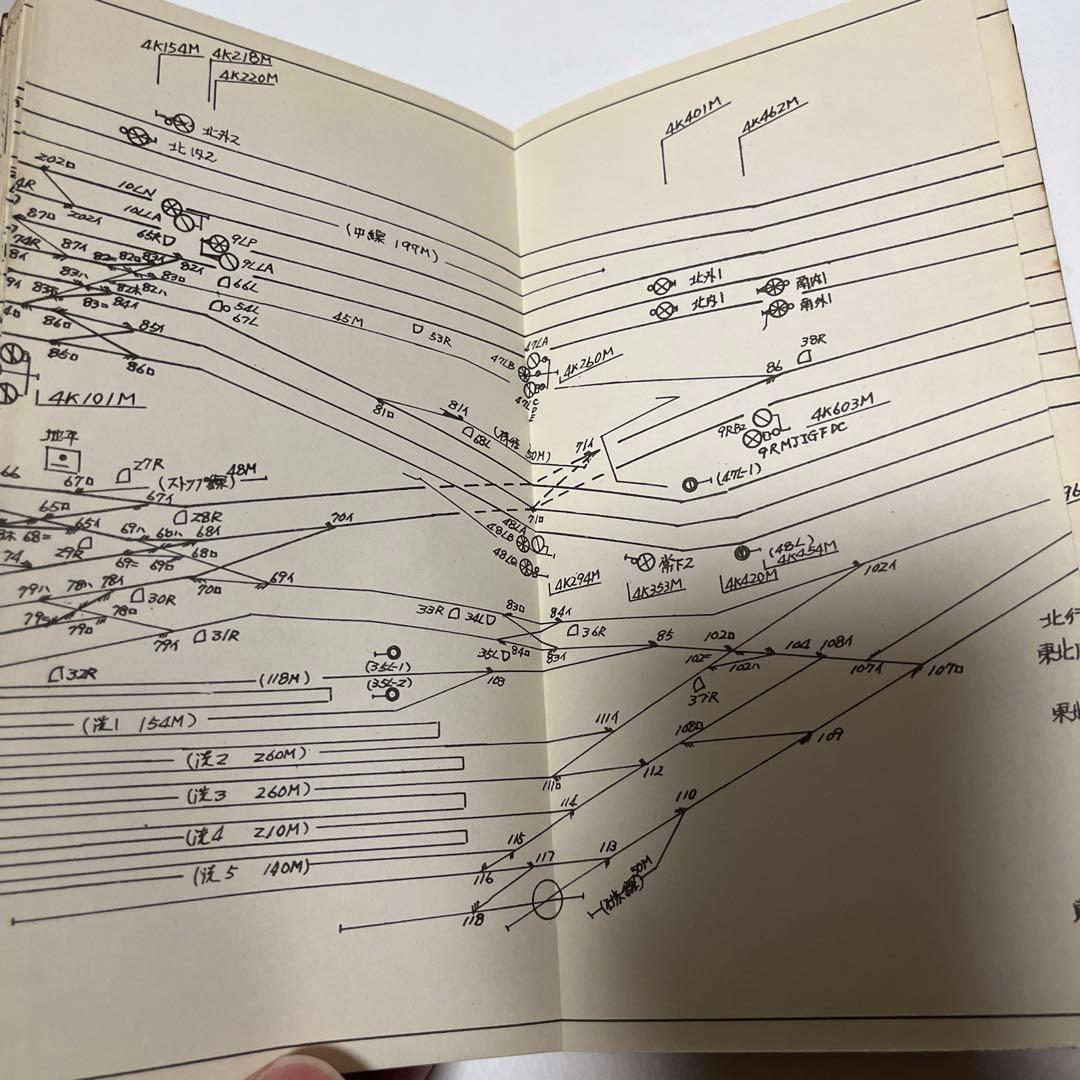 4K154M
4K218M
4K220M
4K401M
4K462M
北外2
北内2
202ロ
10LN
4R
10LLA
202イ
65ホ
9LP
9LLA
(中線 197M)
87ロ
74R
87イ
82ロ
83イ
82イ
83ロ
83ハ
82ハ
83ニ
84イ
66L
54L
67L
45M
53R
北外1
北内1
南内1
南外1
86ロ
85イ
85ロ
86ロ
67LA
47LB
47LC
D
E
4K260M
38R
86
4K101M
81ロ
81イ
68L
50M)
71イ
9RB2
4K603M
9RMJIGFDC
(47L-1)
地平
66
67ロ
27R
(ストップ線)
48M
67イ
65ロ
28R
70イ
71ロ
65イ
68ニ
69ハ
68ハ
68イ
29R
69ニ
69ロ
68ロ
74
48LA
48LB
48LQ
4K294M
常下2
4K353M
(48L)
4K454M
4K420M
96
102イ
79ハ
78ハ
78イ
70ロ
69イ
30R
78ロ
79ニ
79ロ
79イ
31R
33R
34L
83ロ
84イ
36R
35L
84ロ
83イ
85
102ロ
104
108イ
102ニ
102ハ
107イ
107ロ
37R
北行
東北
東北
32R
(118M)
(35L-1)
(35L-2)
103
(洗1 154M)
(洗2 260M)
(洗3 260M)
(洗4 210M)
(洗5 140M)
111イ
108ロ
109
111ロ
112
114
110
115
116
117
113
118
50M